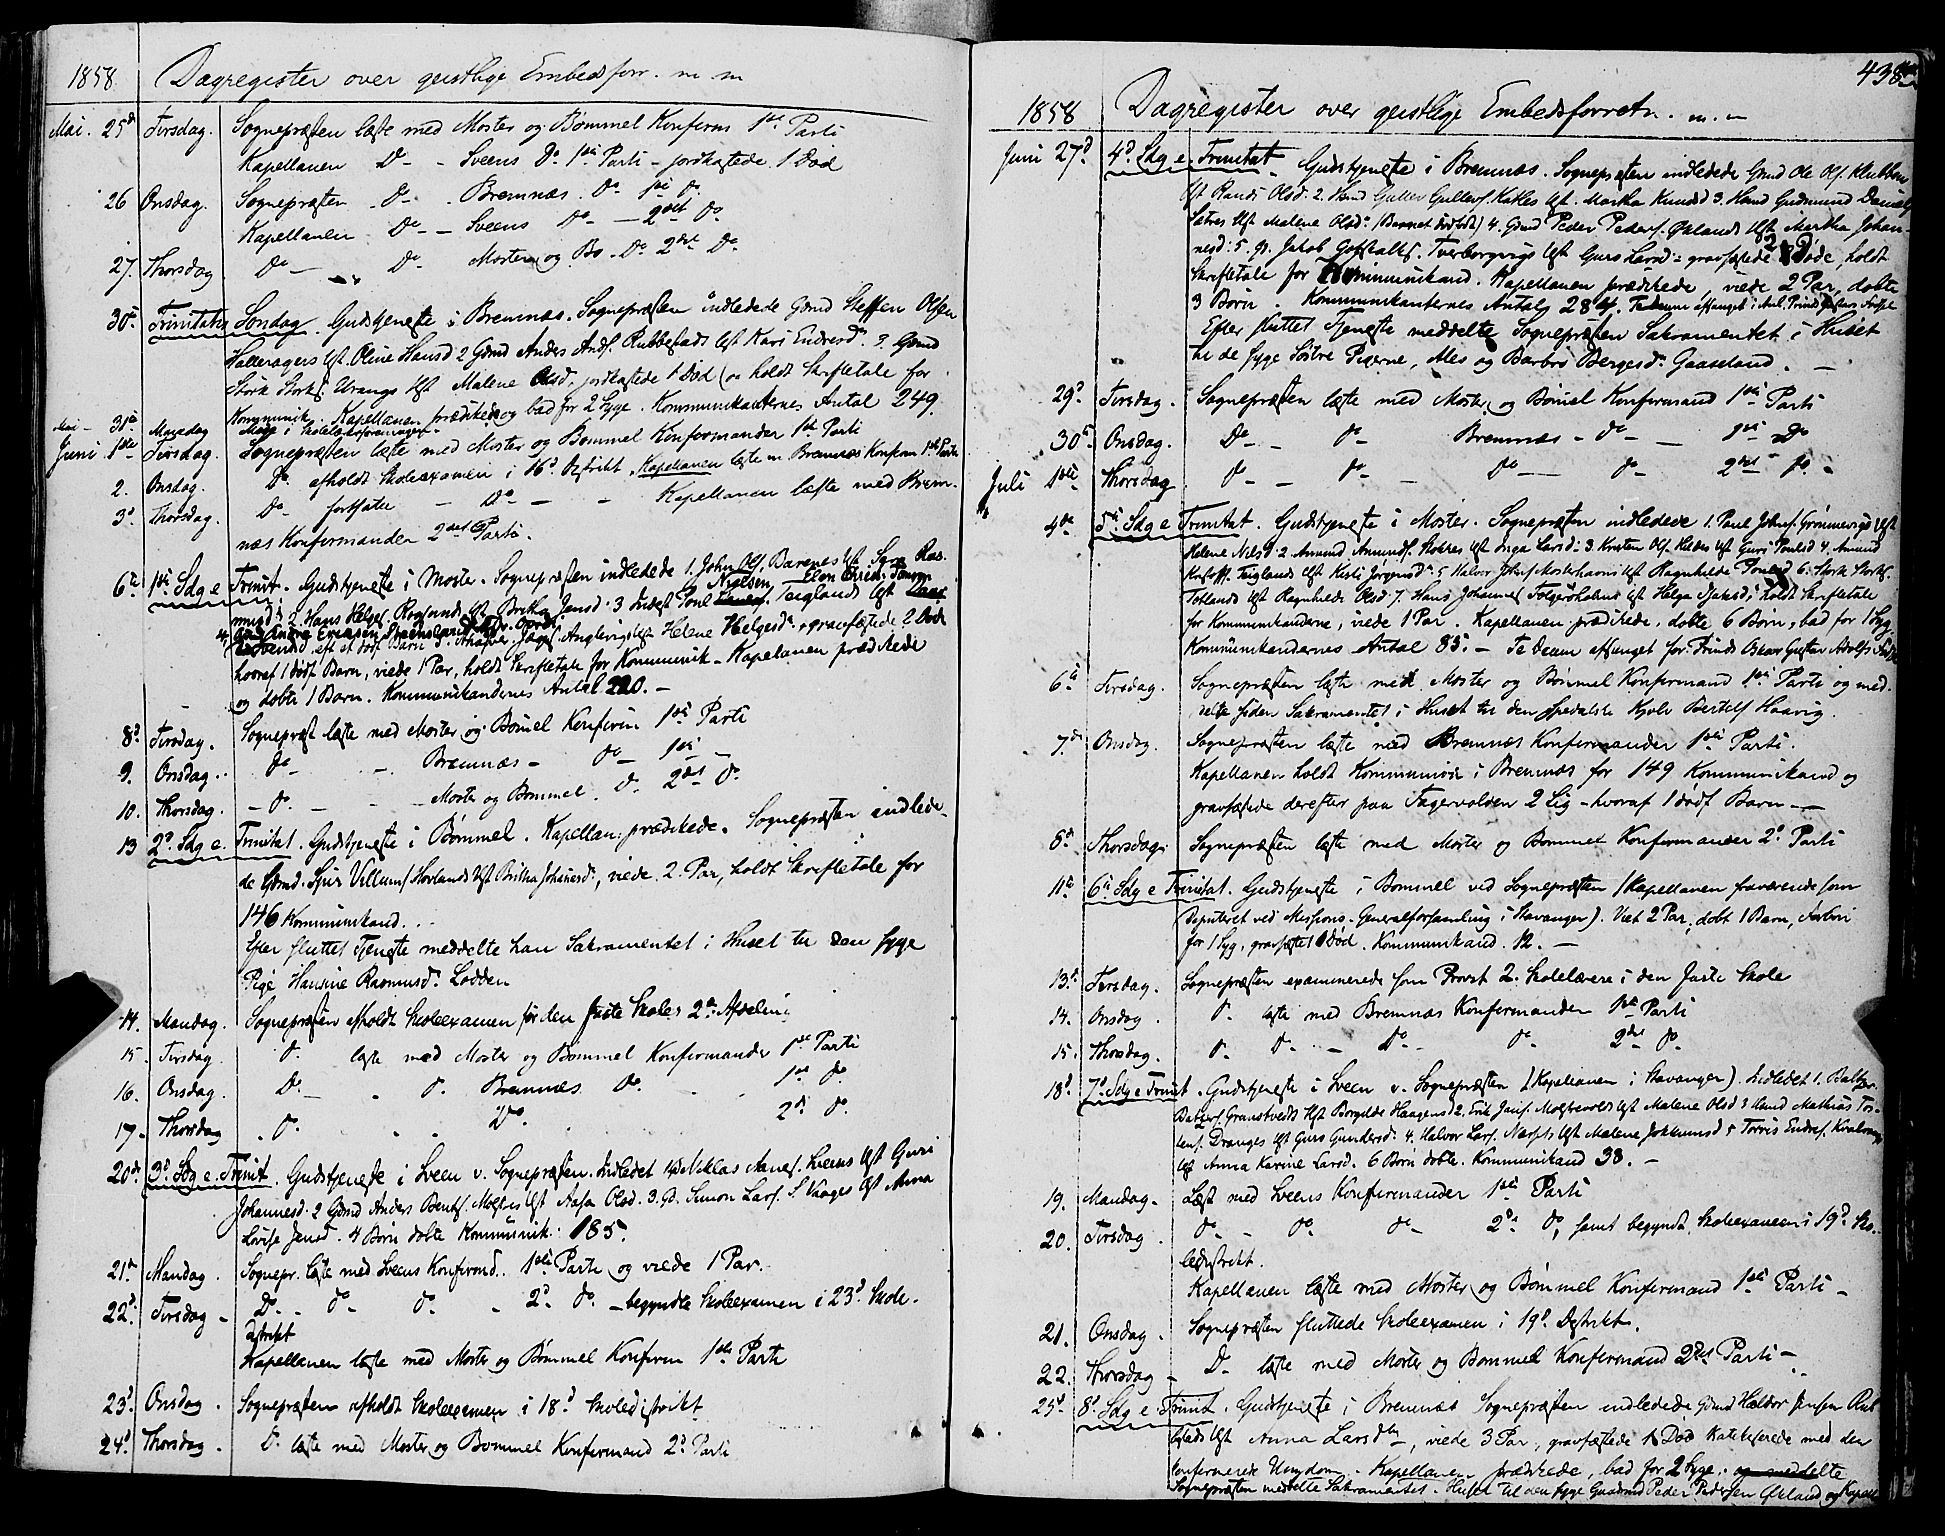 1858. Dagregister over geistlige Embedsforr. m m
Mai. 25d Tirsdag. Sognepræsten læste med Moster og Bømmel Konfirms 1ste Parti
Kapellanen Do - Sveens Do 1ste Parti - jordkastede 1 Død
26 Onsdag. Sognepræsten Do - Bremnæs Do 1ste do
Kapellanen - Do - Sveens Do - 2det do
27. Thorsdag Do - Do - Moster og Bø - Do 2det Do
30te Trinitatis Søndag. Gudstjeneste i Bremnæs. Sognepræsten indledede Gmd Steffen Olsen
Halleragers Ust. Oline Hansd 2 Gmd Anders Ands. Rubbestads Ust Kari Endresdr 3. Gmd
Størk Storks. Urangs Ust Malene Olsd. jordkastede 1 Død, holdt Skriftetale for
Kommunik. Kapellanen prædikede og bad for 2 Syge. Kommunikanternes Antal 249.
Mai - 31te Mandag
Juni 1ste Tirsdag. Sognepræsten læste med Moster og Bømmel Konfirmander 1ste Parti
2. Onsdag. Do afholdt Skoleexamen i 16d Distrikt. Kapellanen læste m. Bremnæs Konfirm 1ste Parti
3d Thorsdag. Do fortsatte - Do - - Kapellanen læste med Brem-
næs Konfirmander 2det Parti.
6te 1ste Sdg e Trinit. Gudstjeneste i Moster. Sognepræsten indledede 1. John Ols. Barenæs Ust Ras-
musd: 2 Hans Helges. Roglunds Ust Brita Jensd. 3 Poul Nielsen Teiglands Ust
Anglevigs Ust Helene Helgesd. gravfæstede 2 Døde
hvoraf 1 dødf. Barn, viede 1 Par, holdt Skriftetale for Kommunik - Kapellanen prædikede
og døbte 1 Barn. Kommunikandernes Antal 220. -
8d Tirsdag. Sognepræst læste med Moster og Bømel Konfirm 1ste Parti
9. Onsdag.. do - - Bremnæs - do 1ste -
10. Thorsdag. - do. - - Moster og Bømmel. D. 2det do.
13 2d Sdg e. Trinitat. Gudstjeneste i Bømmel. Kapellan: prædikede. Sognepræsten indlede-
de Gmd. Sjur Villums Hovlands Ust Britha Johanesd., viede 2. Par, holdt Skriftetale for
146 Kommunikand...
Efter sluttet Tjeneste meddelte han Sakramentet i Huset til den syge
Pige Hansine Rasmusd. Lodden
14. Mandag. Sognepræsten afholdt Skoleexamen for den faste Skoles 2den Afdeling
15. Tirsdag. do. læste med Moster og Bømmel Konfirmander 1ste Parti
16. Onsdag. Do. - . do. Bremnæs Do. - 1ste do.
17. Thorsdag . do. . . Do. 2d do.
20de 3d Sdg e. Trinit. Gudstjeneste i Sveen v. Sognepræsten. Indledet 1. Niklas Aanes. Sveens Ust Guri
Johannesd. 2 Gmd Anders Bents. Ust Aasa Olsd. 3. G. Simon Lars. S. Vaages Ust Anna
Lovise Jensd. 4 Børn døbte Kommunik: 185.
21de Mandag. Sognepr. læste med Sveens Konfirmd. 1ste Parti og viede 1 Par.
22d Tirsdag - D. - do - do. - 2d do. - begyndte Skoleexamen i 23d Skole-
distrikt
Kapellanen læste med Moster og Bømmel Konfirm 1ste Parti
23d Onsdag. Sognepræsten afholdt Skoleexamen i 18d Skoledistrikt
24d Thorsdag. D. læste med Moster og Bømmel Konfirmand 2d Parti
438
1858 Dagregister over geistlige Embedsforretn. m. m
Juni 27d. 4d Sdg e. Trinitat. Gudstjeneste i Bremnæs. Sognepræsten indledede Gmd Ole Ols. Klubben
Ust Randi Olsd. 2. Hmd Gutter Gutters. Katles Ust. Martha Knudsd 3. Hmd Gudmund Daniels
Sætres Ust Malene Olsd. (Barnet dødfødt) 4. Gmd Peder Peders. Øklands Ust Martha Johan-
nesd: 5. G. Jakob Gotskalks. Tverborgvigs Ust Guro Larsd: gravfæstede 2 Døde, holdt
Skriftetale for Kommunikand. Kapellanen prædikede, viede 2 Par, døbte
3 Børn. Kommunikanternes Antal 284.
Efter sluttet Tjeneste meddelte Sognepræsten Sakramentet i Huset
til de syge Søstre Pigerne, Ales og Barbro Bergesd. Gaaseland. -
29d Tirsdag. Sognepræsten læste med Moster og Bømel Konfirmand 1ste Parti
30te Onsdag. Do - do - Bremnæs - do - 1ste Do
Juli 1ste Thorsdag do - do - do - do - 2det do -
4de 5te Sdg e Trinitat. Gudstjeneste i Moster. Sognepræsten indledede 1. Poul Johns. Grønnevigs Ust
Helene Nilsd: 2 Amund Amunds. Ust Inga Larsd: 3. Kristen Ols. Ust Guri Poulsd 4. Amund
Kristoff. Teiglands Ust Kirsti Jørgensd. 5 Halvor Johns. Mosterhavns Ust Ragnhilde Poulsd 6. Størk Størks.
Totlands Ust Ragnhilde Olsd 7. Hans Johannes Ust Helga Sjursd; holdt Skriftetale
for Kommunikanderne, viede 1 Par. Kapellanen prædikede, døbte 6 Børn, bad for 1 Syg
Kommunikandernes Antal 83. - Te Deum afsunget for Prinds Oskar Gustav Adolfs
6te Tirsdag. Sognepræsten læste med Moster og Bømmel Konfirmand 1ste Parti og med-
delte siden Sakramentet i Huset til den spedalske Bertels Haavig.
7de Onsdag. Sognepræsten læste med Bremnæs Konfirmander 1ste Parti.
Kapellanen holdt Kommunion i Bremnæs for 149 Kommunikand og
gravfæstede derefter paa Fagervolden 2 Lig - hvoraf 1 dødf Barn -
8d Thorsdag. Sognepræsten læste med Moster og Bømmel Konfirmander 2d Parti
11te 6te Sdg e Trinitat. Gudstjeneste i Bømmel ved Sognepræsten (Kapellanen fraværende som
Deputeret ved Missions-Generalforsamling i Stavanger). Viet 2 Par, døbt 1 Barn, Forbøn
for 1 Syg, gravfæstet 1 død. Kommunikand. 12. -
13d Tirsdag. Sognepræsten examinerede som Provst 2. Skolelærere i den faste Skole
14. Onsdag. do. læste med Bremnæs Konfirmander 1ste Parti
15. Thorsdag. do. do. - Do. - do. 2det do.
18d 7d Sdg e Trinit. Gudstjeneste i Sveen v. Sognepræsten (Kapellanen i Stavanger). Indledet 1. Baltzer
Baltzers. Granstveds Ust Borgilde Haagensd 2. Erik Ust Malene Olsd 3 Hmd Mathias Tor-
lens. Dranges Ust Guro Gundersd. 4. Halvor Lars. Ust Malene Jokkumsd 5 Torris Endres.
Ust Anna Karine Larsd. 6 Børn døbte. Kommunikand 38. -
19. Mandag. Læst med Sveens Konfirmander 1ste Parti
20. Tirsdag. do - do. do - 2d do, samt begyndt Skoleexamen i 19d Sko-
ledistrikt.
Kapellanen læste med Moster og Bømmel Konfirmand 1ste Parti -
21. Onsdag. Sognepræsten sluttede Skoleexamen i 19d. Distrikt.
22. Thorsdag - D. læste med Moster og Bømmel Konfirmand 2det Parti -
25d 8d Sdg e. Trinit. Gudstjeneste i Bremnæs Sognepræsten indledede Gmd Haldor Jensen Rub-
bestads Ust Anna Larsdtr, viede 3 Par, gravfæstede 1 Død Katekiserede med den
konfirmerede Ungdom. Kapellanen prædikede, bad for 2 Syge. og meddelte
Sognepræsten meddelte Sakramentet i Huset til den syge Gaardmd Peder Pedersen Økland og Kapell